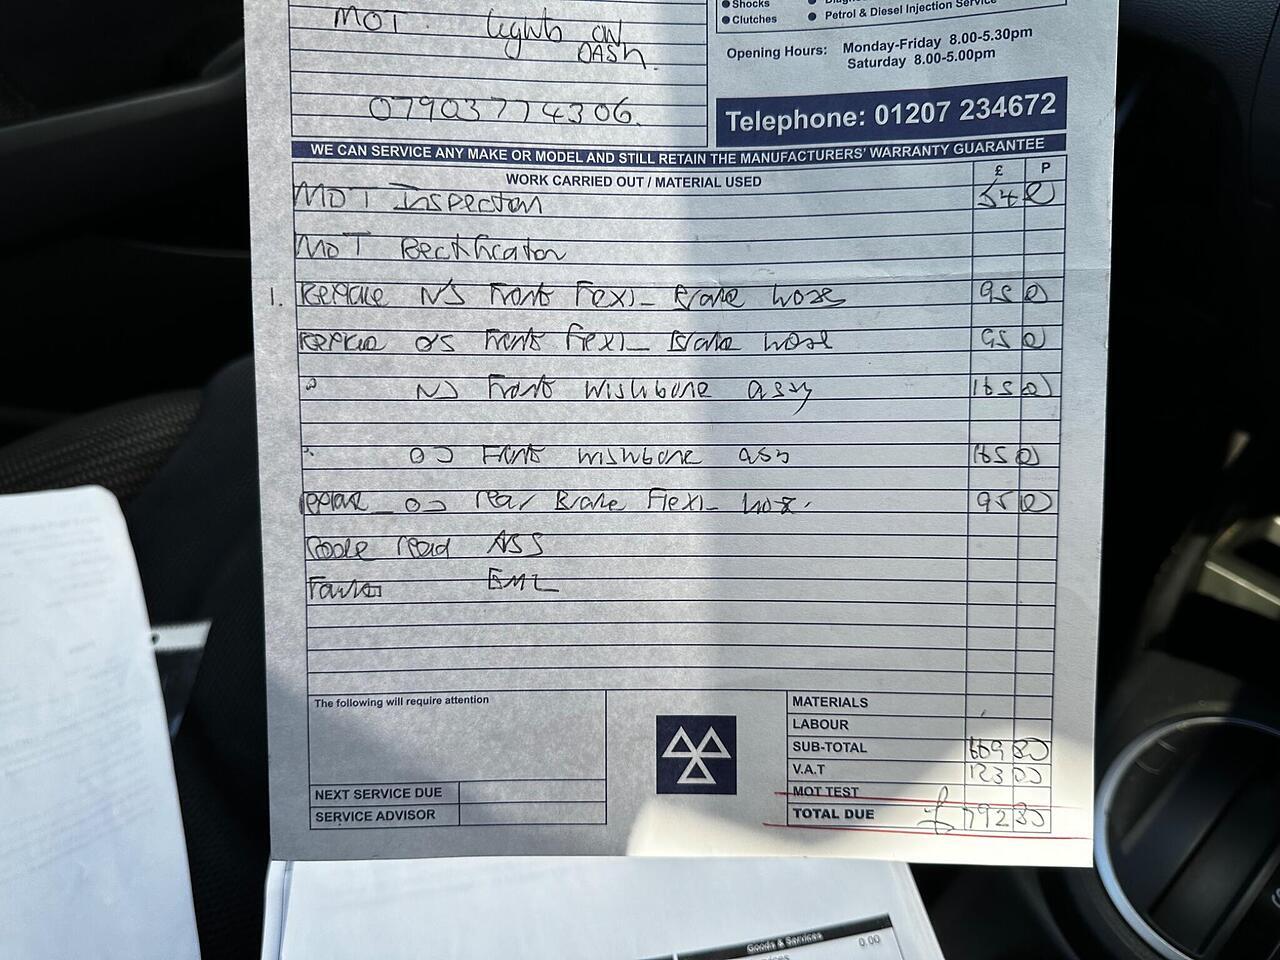 Shocks
Clutches
Petrol & Diesel Injection Service
MOT. lights on
DASH.
Opening Hours: Monday-Friday 8.00-5.30pm
Saturday 8.00-5.00pm
07903774306.
Telephone: 01207 234672
WE CAN SERVICE ANY MAKE OR MODEL AND STILL RETAIN THE MANUFACTURERS' WARRANTY GUARANTEE
WORK CARRIED OUT / MATERIAL USED £ P
MOT Inspection 54
MOT Rectification
1. Replace NS Front Flexi_ Brake hose 95 0
Replace OS Front Flexi_ Brake hose 95 0
" NS Front wishbone assy 165 0
" OS Front wishbone assy 165 0
Replace OS rear Brake Flexi_ hose. 95 0
Code read ABS
Faults EML
The following will require attention
MATERIALS
LABOUR
SUB-TOTAL 669 80
V.A.T 123 00
NEXT SERVICE DUE
MOT TEST
SERVICE ADVISOR
TOTAL DUE £ 792 80
Goods & Services
0.00